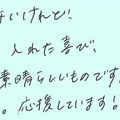 ないけんど!
入れた喜び!
素晴らしいものです
。応援しています!